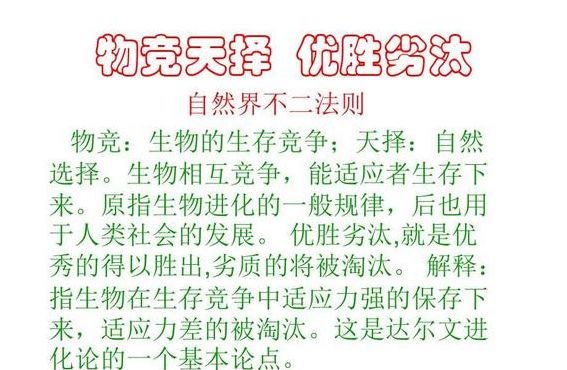 物竞天择 优胜劣汰
自然界不二法则
物竞：生物的生存竞争；天择：自然
选择。生物相互竞争，能适应者生存下
来。原指生物进化的一般规律，后也用
于人类社会的发展。 优胜劣汰,就是优
秀的得以胜出,劣质的将被淘汰。 解释：
指生物在生存竞争中适应力强的保存下
来，适应力差的被淘汰。这是达尔文进
化论的一个基本论点。